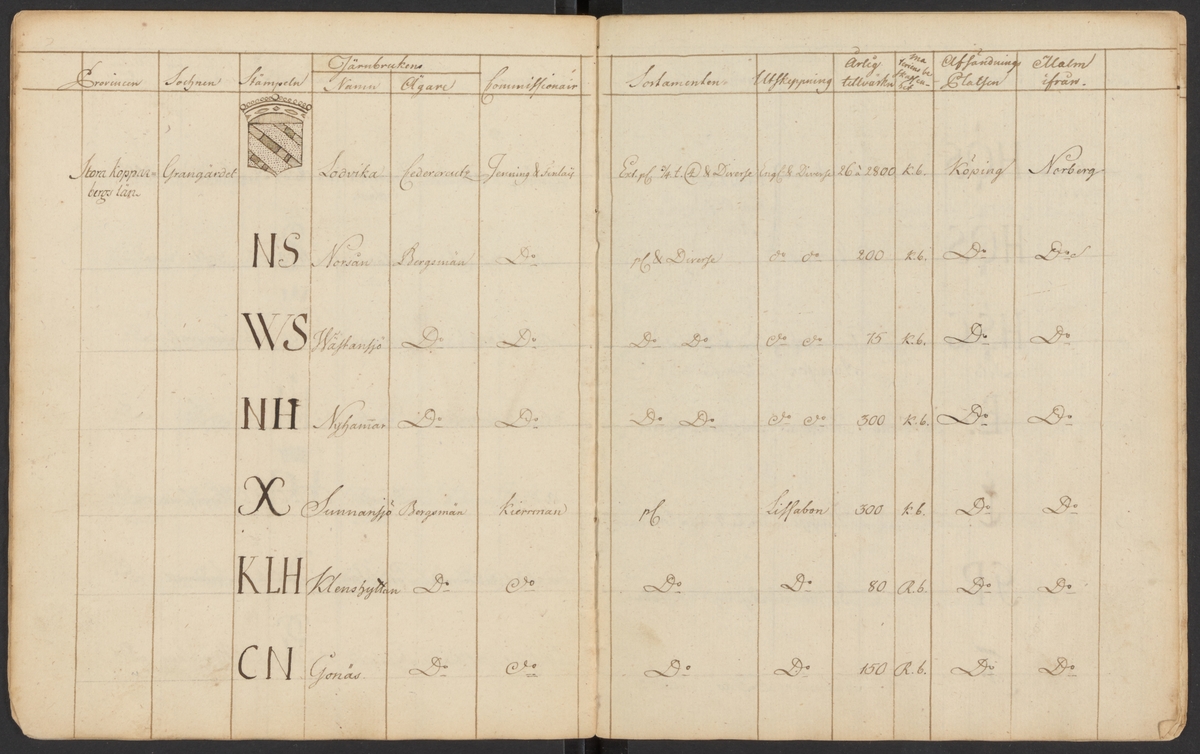 Järnbrukens
Provincen Sochnen Stämpeln Namn Ägare Commissionair Sortamenten Utskeppning Årlig tillvärkn Afsändnings Platsen Malm ifrån.
Stora Koppar= Grangärdet Lodvika Cedercreutz Jenning & Finlay Ext. pf & Diverse Engl. & Diverse 26 à 2800 K.b. Köping Norberg
bergs län
NS Norsån Bergsmän Do pf & Diverse do do 200 K.b. Do Do
WS Wästansjö Do Do Do Do do do 75 K.b. Do Do
NH Nyhamar Do Do Do Do do do 300 K.b. Do Do
X Sunnansjö Bergsmän Kierrman pf Lissabon 300 K.b. Do Do
KLH Klenshyttan Do do Do Do 80 R.b. Do Do
CN Gonäs Do do Do Do 150 R.b. Do Do